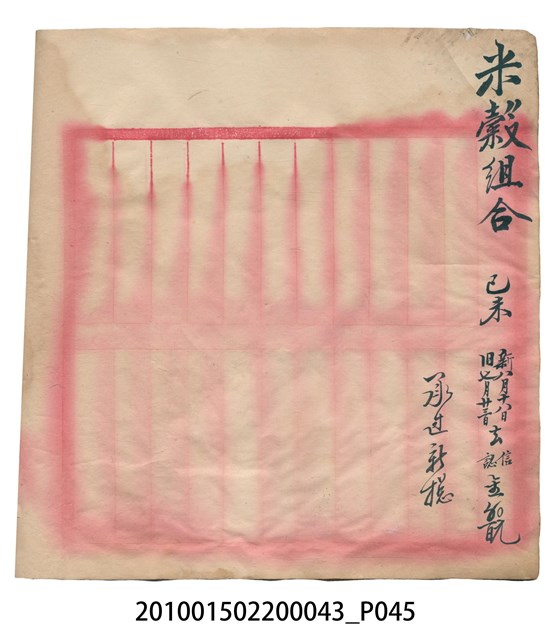 米穀組合 己未 新八月十八日 旧七月廿三日 去信 認
承过新穩
201001502200043_P045